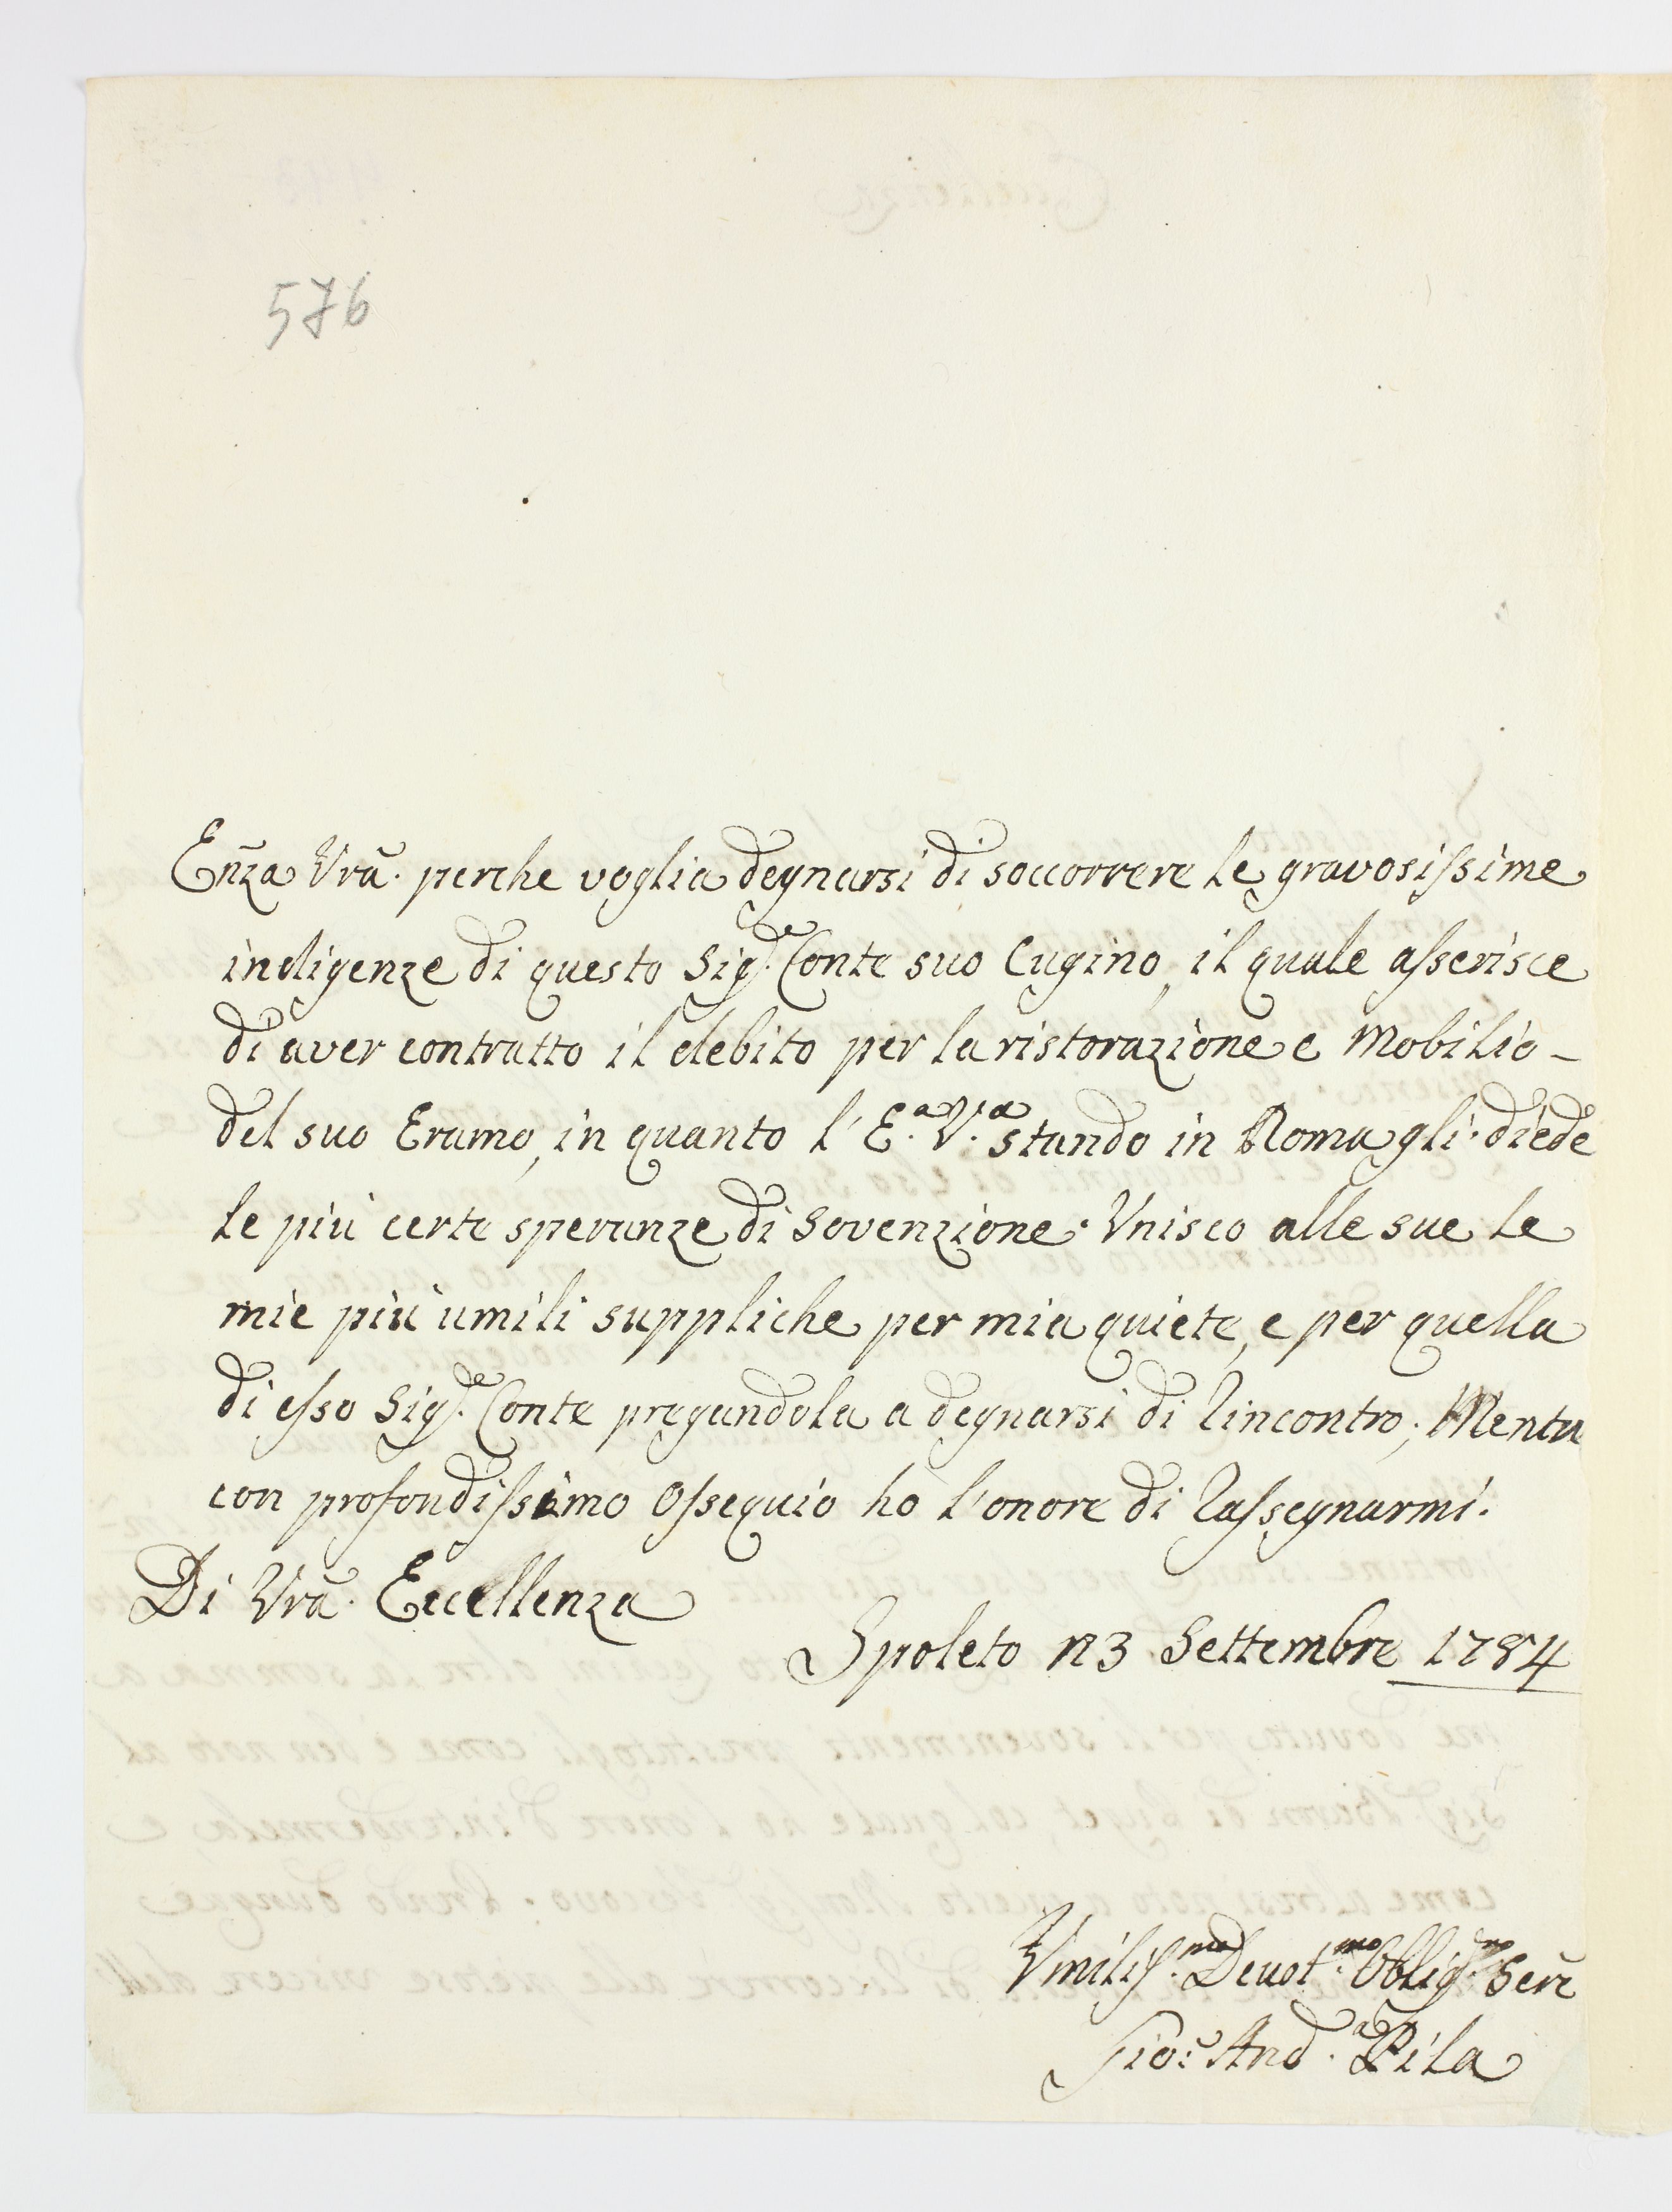 576
Enza Vrã. perche voglia degnarsi di soccorrere le gravosissime
indigenze di questo Sig.re Conte suo Cugino, il quale asserisce
di aver contratto il debito per la ristorazione e Mobilio -
del suo Eramo, in quanto l'E.a V.a stando in Roma gli diede
le più certe speranze di sovenzione. Unisco alle sue le
mie più umili suppliche per mia quiete, e per quella
di esso Sig.re Conte pregandola a degnarsi di rincontro; Mentre
con profondissimo ossequio ho l'onore di rassegnarmi.
Di Vrã. Eccellenza
Spoleto 13 Settembre 1784
Umilis.mo Devot.mo Obblig.mo Serē
Gio: And.a Pila